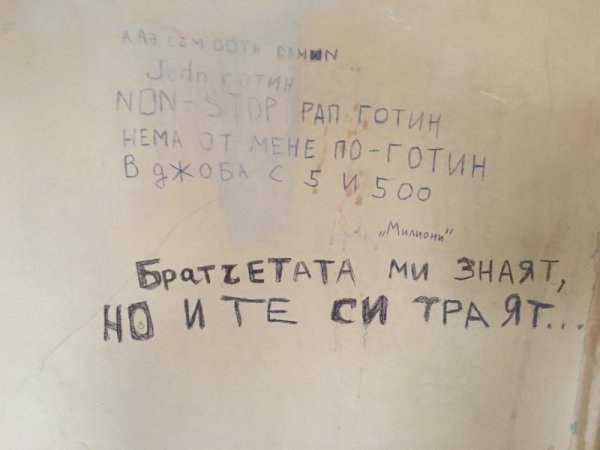 А АЗ СЪМ
John ГОТИН
NON-STOP РАП ГОТИН
НЕМА ОТ МЕНЕ ПО-ГОТИН
В ДЖОБА С 5 И 500
„Милиони“
БратчЕТАТА МИ ЗНАЯТ,
НО И ТЕ СИ ТРАЯТ...